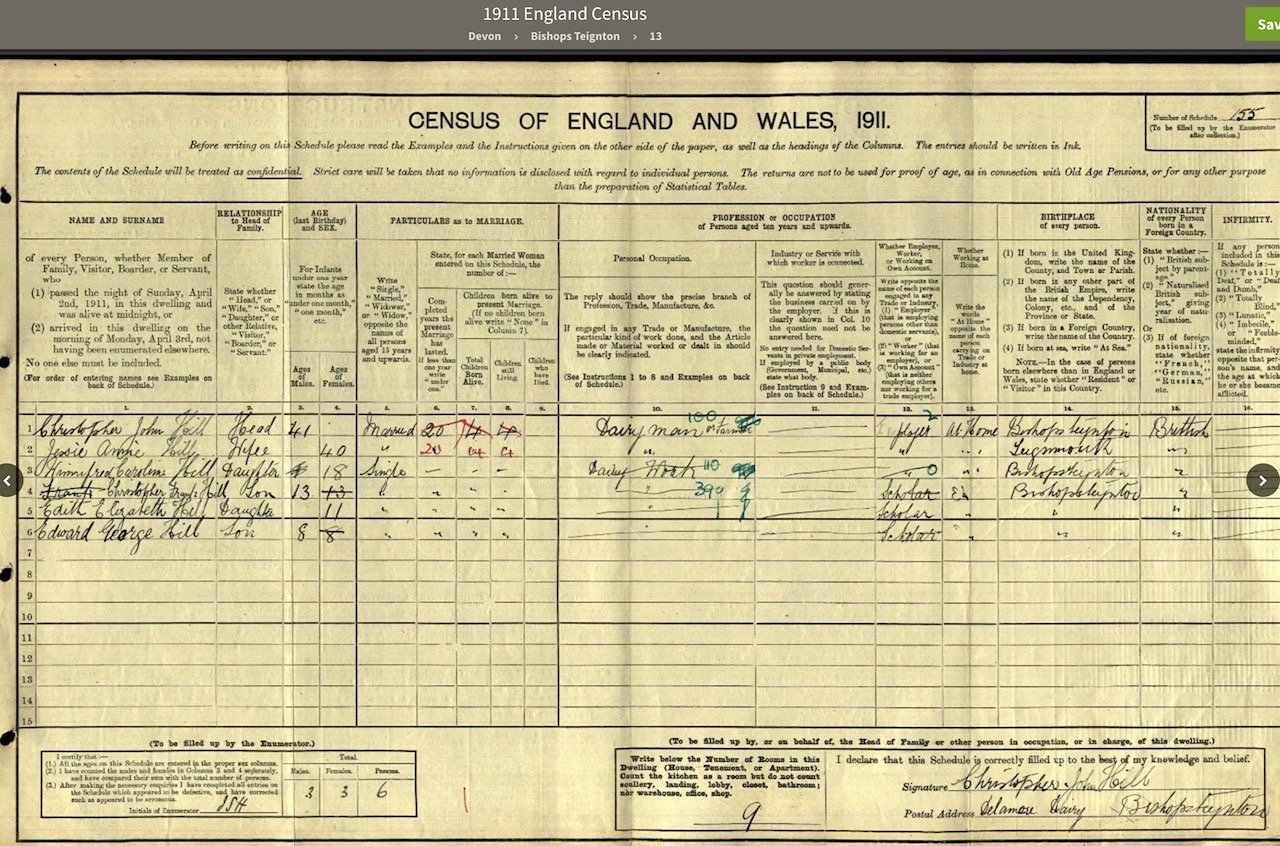 1911 England Census
Devon › Bishops Teignton › 13
Sav
CENSUS OF ENGLAND AND WALES, 1911.
Number of Schedule 155
(To be filled up by the Enumerator after collection.)
Before writing on this Schedule please read the Examples and the Instructions given on the other side of the paper, as well as the headings of the Columns. The entries should be written in Ink.
The contents of the Schedule will be treated as confidential. Strict care will be taken that no information is disclosed with regard to individual persons. The returns are not to be used for proof of age, as in connection with Old Age Pensions, or for any other purpose
than the preparation of Statistical Tables.
NAME AND SURNAME
of every Person, whether Member of
Family, Visitor, Boarder, or Servant,
who
(1) passed the night of Sunday, April
2nd, 1911, in this dwelling and
was alive at midnight, or
(2) arrived in this dwelling on the
morning of Monday, April 3rd, not
having been enumerated elsewhere.
No one else must be included.
(For order of entering names see Examples on
back of Schedule.)
RELATIONSHIP
to Head of
Family.
State whether
"Head," or
"Wife," "Son,"
"Daughter," or
other Relative,
"Visitor,"
"Boarder," or
"Servant."
AGE
(last Birthday)
and SEX.
For Infants
under one year
state the age
in months as
"under one month,"
"one month,"
etc.
Ages of Males.
Ages of Females.
PARTICULARS as to MARRIAGE.
Write
"Single,"
"Married,"
"Widower,"
or "Widow,"
opposite the
names of
all persons
aged 15 years
and upwards.
State, for each Married Woman
entered on this Schedule, the
number of:—
Completed years the present Marriage has lasted. If less than one year write "under one."
Children born alive to
present Marriage.
(If no children born
alive write "None" in
Column 7).
Total Children Born Alive.
Children still Living.
Children who have Died.
PROFESSION or OCCUPATION
of Persons aged ten years and upwards.
Personal Occupation.
The reply should show the precise branch of
Profession, Trade, Manufacture, &c.
If engaged in any Trade or Manufacture, the
particular kind of work done, and the Article
made or Material worked or dealt in should
be clearly indicated.
(See Instructions 1 to 8 and Examples on back
of Schedule.)
Industry or Service with
which worker is connected.
This question should generally
be answered by stating
the business carried on by
the employer. If this is
clearly shown in Col. 10
the question need not be
answered here.
No entry needed for Domestic Servants
in private employment.
If employed by a public body
(Government, Municipal, etc.)
state what body.
(See Instruction 9 and Examples
on back of Schedule.)
Whether Employer,
Worker,
or Working on
Own Account.
Whether
Working at
Home.
Write the words "At Home" opposite the name of each person carrying on Trade or Industry at home.
BIRTHPLACE
of every person.
(1) If born in the United Kingdom,
write the name of the
County, and Town or Parish.
(2) If born in any other part of
the British Empire, write
the name of the Dependency,
Colony, etc., and of the
Province or State.
(3) If born in a Foreign Country,
write the name of the Country.
(4) If born at sea, write "At Sea."
NOTE.—In the case of persons
born elsewhere than in England or
Wales, state whether "Resident" or
"Visitor" in this Country.
NATIONALITY
of every Person
born in a
Foreign Country.
State whether:—
(1) "British subject by parentage,"
(2) "Naturalised British subject," giving year of naturalisation.
Or
(3) If of foreign nationality, state whether "French," "German," "Russian," etc.
INFIRMITY.
1. 2. 3. 4. 5. 6. 7. 8. 9. 10. 11. 12. 13. 14. 15. 16.
1 Christopher John Hill Head 41 Married 20 4 4 Dairyman or Farmer 100 Employer At Home Bishopsteignton British
2 Jessie Annie Hill Wife 40 " 20 4 4 " " Teignmouth "
3 Winnifred Caroline Hill Daughter 18 Single Dairy Work 110 " 0 Bishopsteignton "
4 Frank Christopher Frank Hill Son 13 13 " " " " 390 Scholar Bishopsteignton "
5 Edith Elizabeth Hill Daughter 11 " " " " Scholar " " "
6 Edward George Hill Son 8 8 " " " " Scholar " " "
7
8
9
10
11
12
13
14
15
(To be filled up by the Enumerator.)
I certify that:—
(1.) All the ages on this Schedule are entered in the proper sex columns.
(2.) I have counted the males and females in Columns 3 and 4 separately,
and have compared their sum with the total number of persons.
(3.) After making the necessary enquiries I have completed all entries on
the Schedule which appeared to be defective, and have corrected
such as appeared to be erroneous.
Initials of Enumerator
Total.
Males. Females. Persons.
3 3 6
(To be filled up by, or on behalf of, the Head of Family or other person in occupation, or in charge, of this dwelling.)
Write below the Number of Rooms in this
Dwelling (House, Tenement, or Apartment).
Count the kitchen as a room but do not count
scullery, landing, lobby, closet, bathroom;
nor warehouse, office, shop.
9
I declare that this Schedule is correctly filled up to the best of my knowledge and belief.
Signature Christopher John Hill
Postal Address Delamore Dairy Bishopsteignton